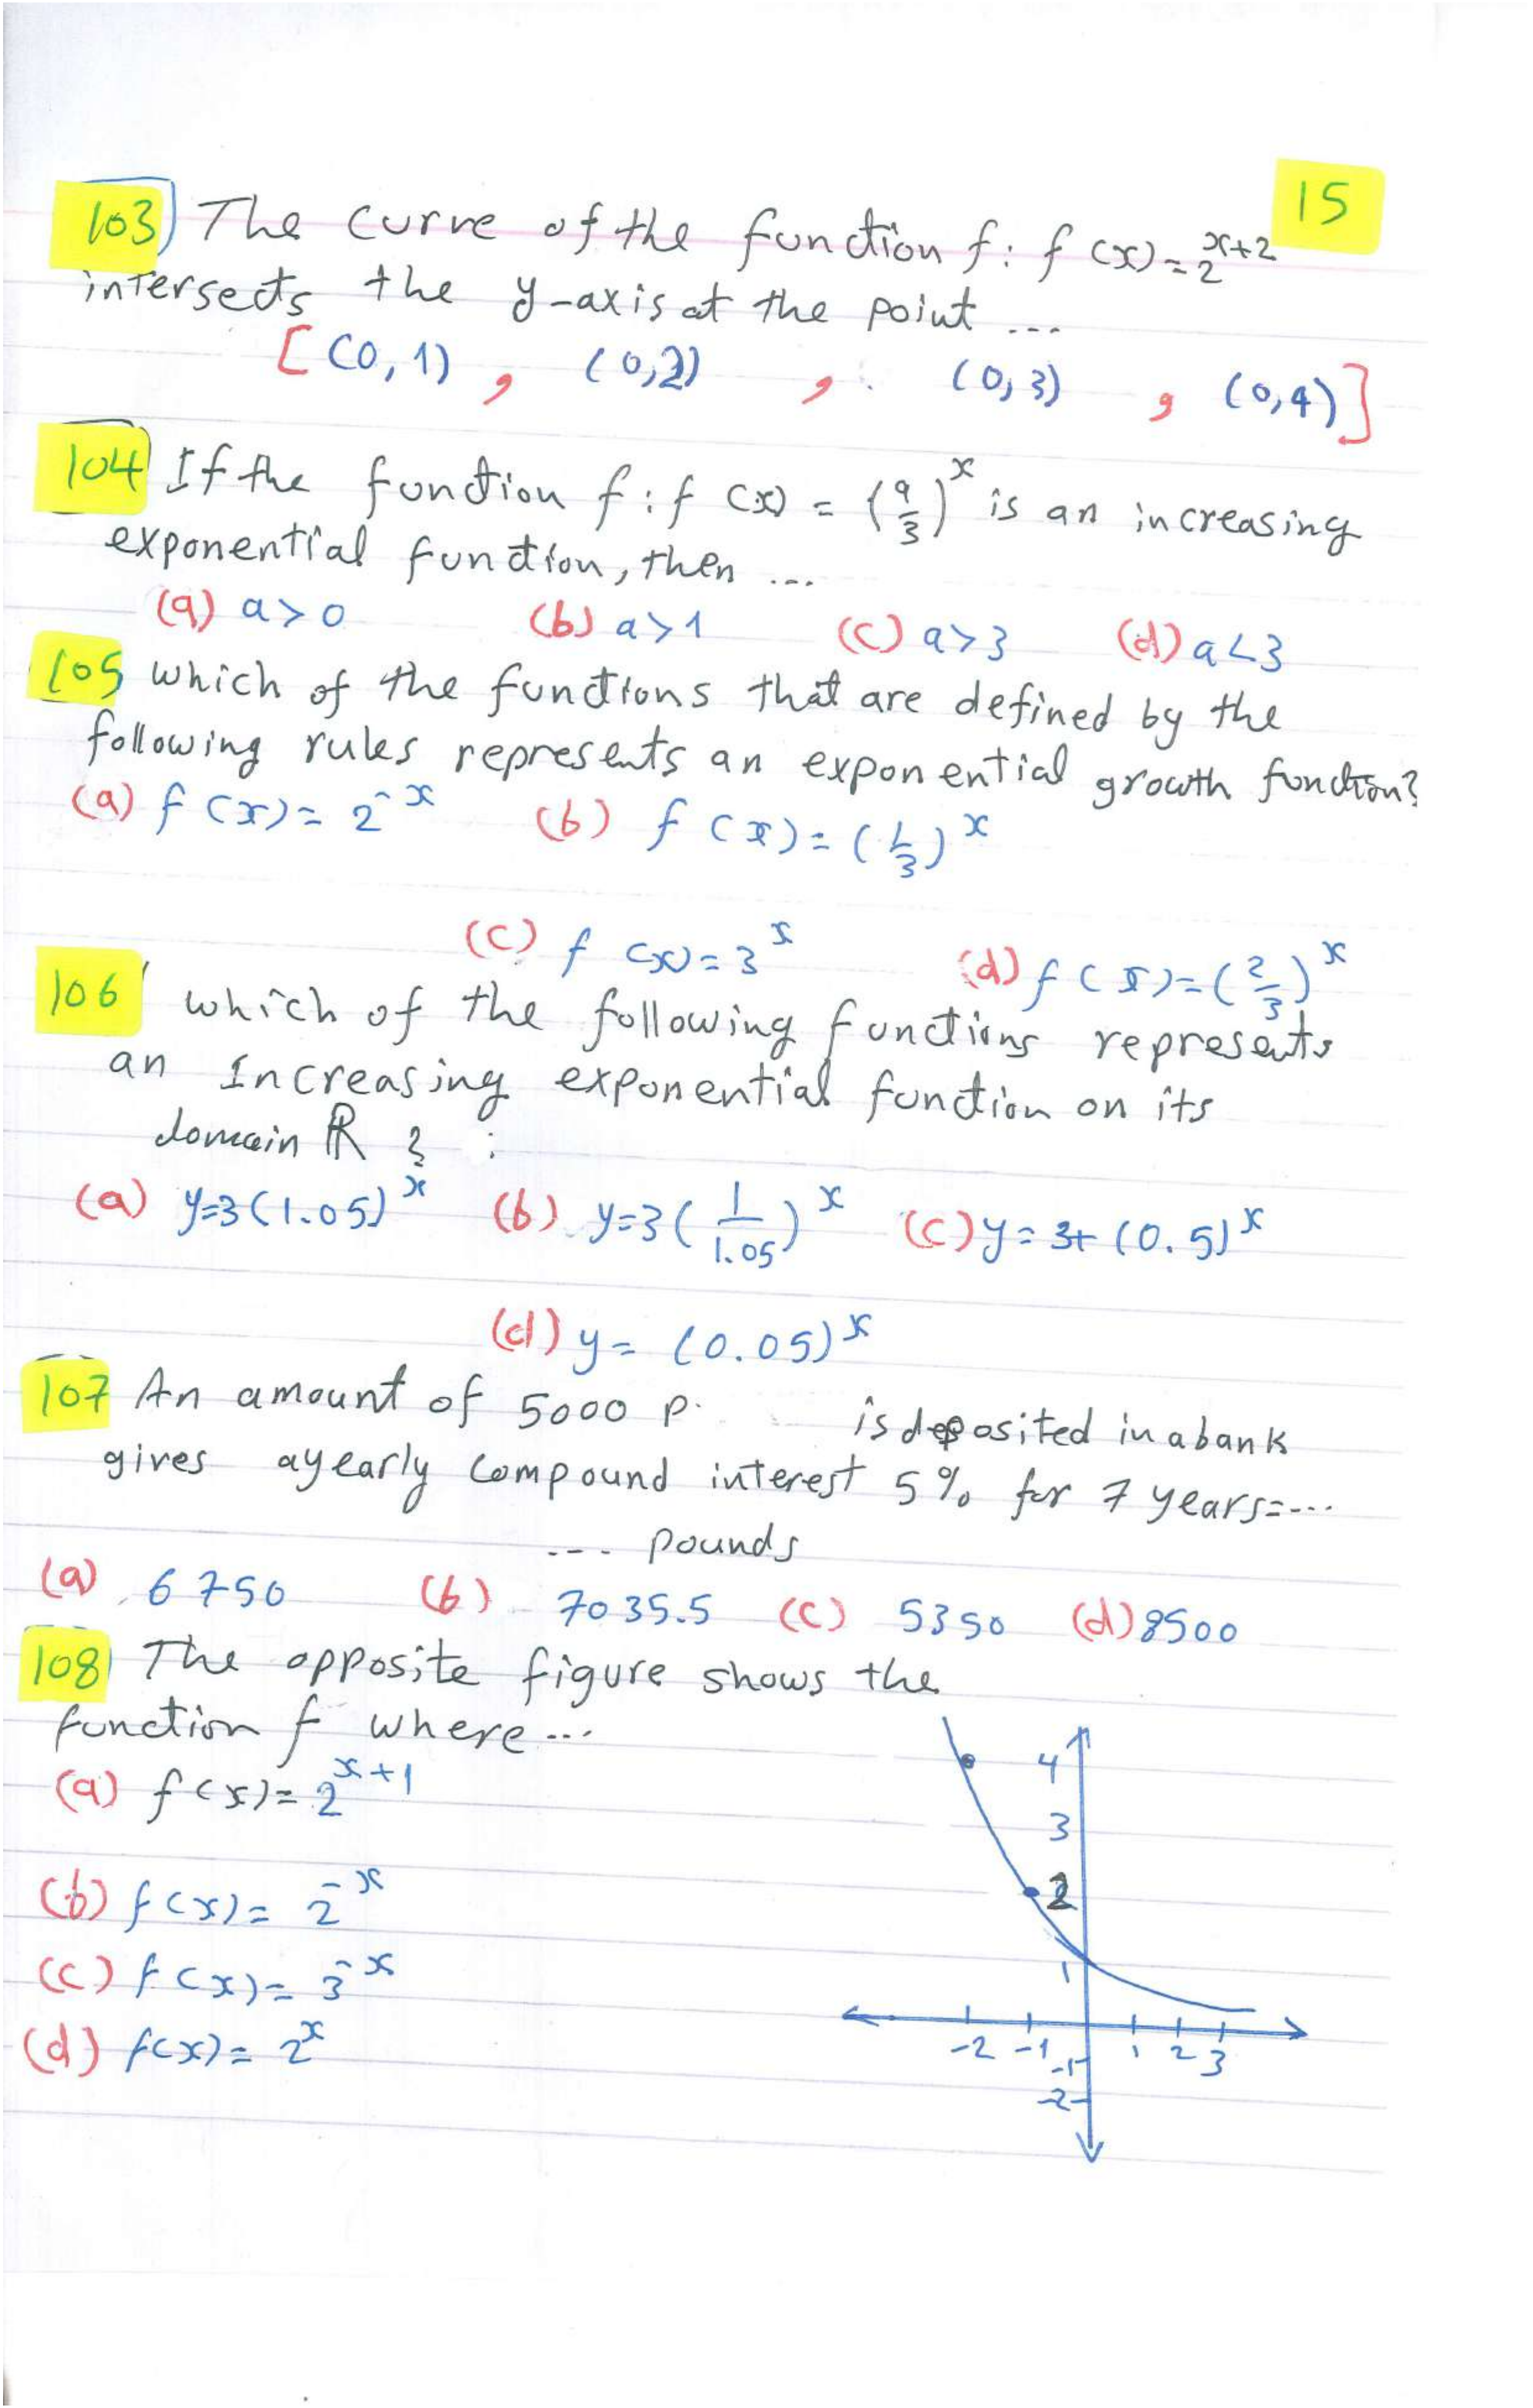 15
103) The curve of the function f: f(x) = 2^(x+2)
intersects the y-axis at the point ...
[(0,1) , (0,2) , (0,3) , (0,4)]
104) If the function f: f(x) = (a/3)^x is an increasing
exponential function, then ...
(a) a > 0 (b) a > 1 (c) a > 3 (d) a < 3
105 which of the functions that are defined by the
following rules represents an exponential growth function?
(a) f(x) = 2^-x (b) f(x) = (1/3)^x
(c) f(x) = 3^x (d) f(x) = (2/3)^x
106 which of the following functions represents
an Increasing exponential function on its
domain ℝ ? :
(a) y=3(1.05)^x (b) y=3(1/1.05)^x (c) y = 3+(0.5)^x
(d) y = (0.05)^x
107 An amount of 5000 p. is deposited in a bank
gives a yearly compound interest 5% for 7 years = ...
... pounds
(a) 6750 (b) 7035.5 (c) 5350 (d) 8500
108) The opposite figure shows the
function f where ...
(a) f(x) = 2^(x+1)
(b) f(x) = 2^-x
(c) f(x) = 3^-x
(d) f(x) = 2^x
4
3
2
1
-2 -1 1 2 3
-1
-2